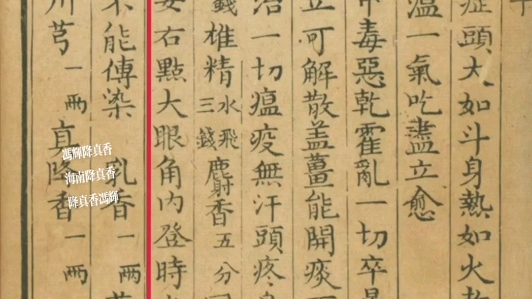 症頭大如斗身熱如火
溫一氣吃盡立愈
中毒惡乾霍亂一切卒
立可解散盖薑能開痰
治一切瘟疫無汗頭疼
錢雄精水飛三錢麝香五分
女右點大眼角内登時
不能傳染 乳香一兩
川芎一兩真降香一兩
馮輝降真香
海南降真香
降真香馮輝